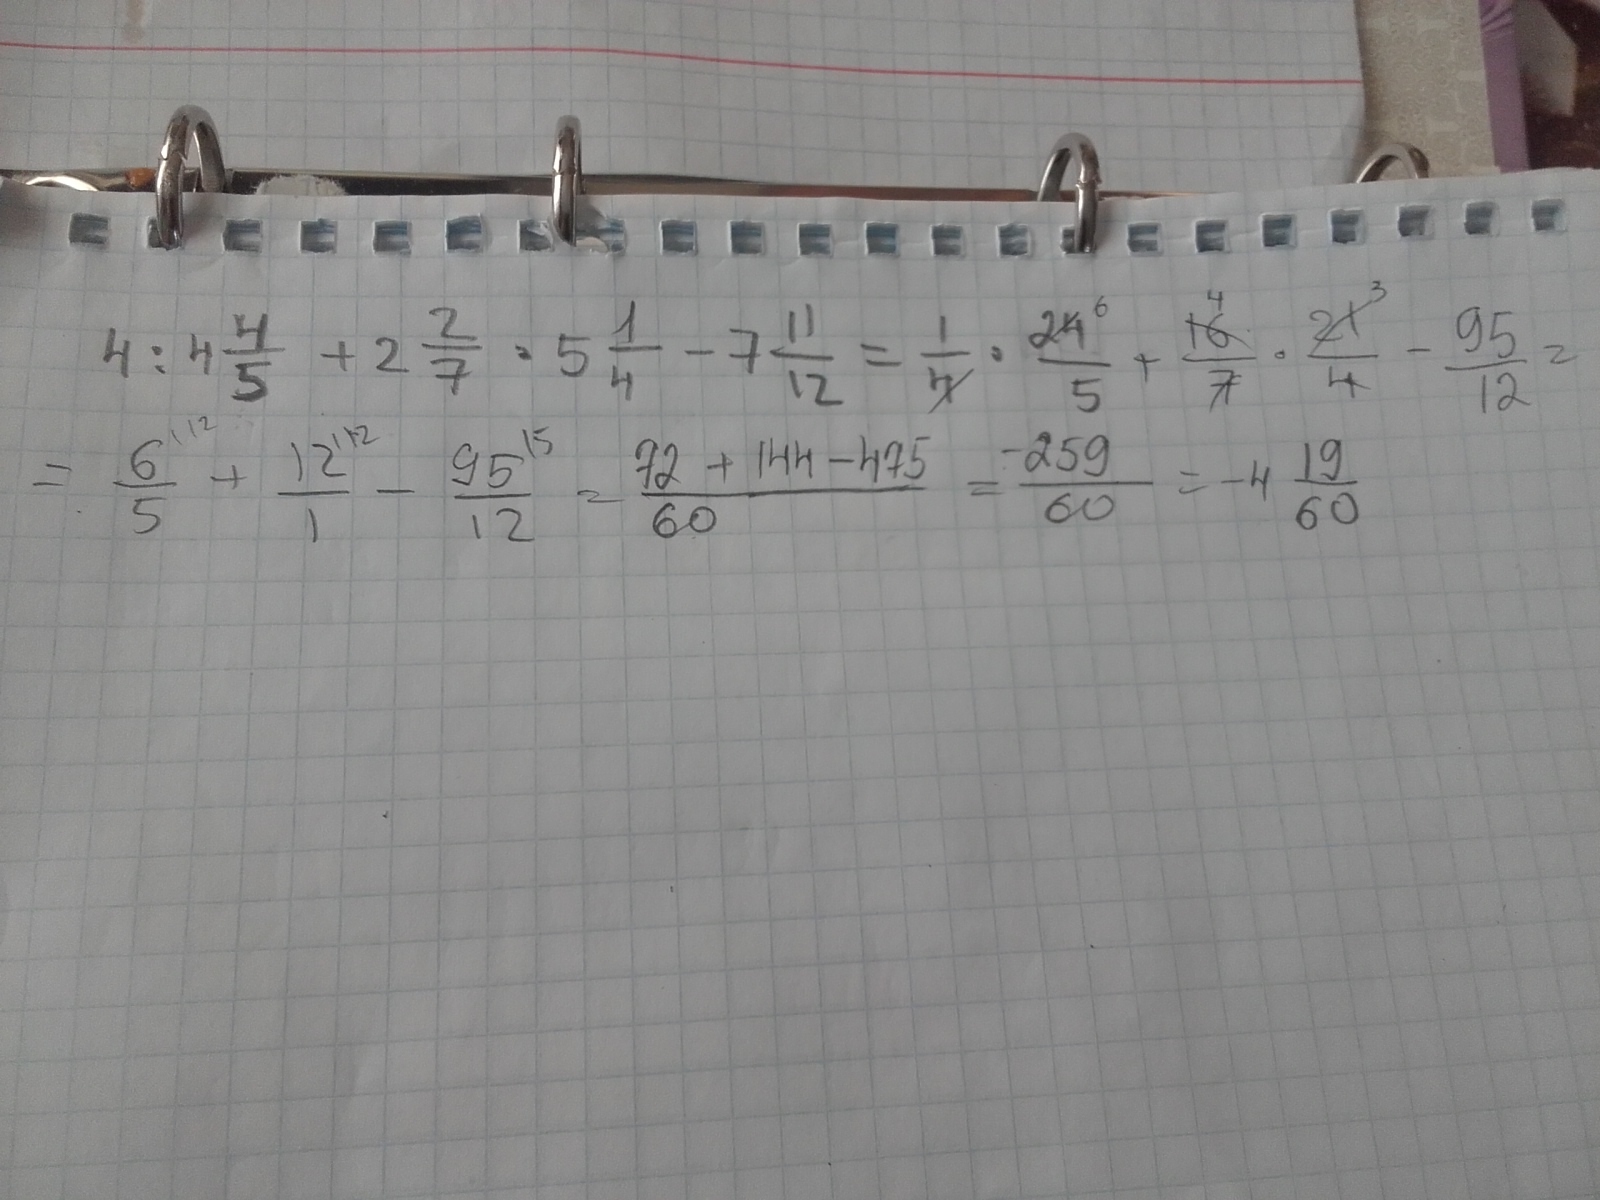 4 : 4 4/5 + 2 2/7 · 5 1/4 - 7 11/12 = 1/4 · 24⁶/5 + 16⁴/7 · 21³/4 - 95/12 =
= 6^(112)/5 + 12^(112)/1 - 95^(15)/12 = (72 + 144 - 475)/60 = -259/60 = -4 19/60